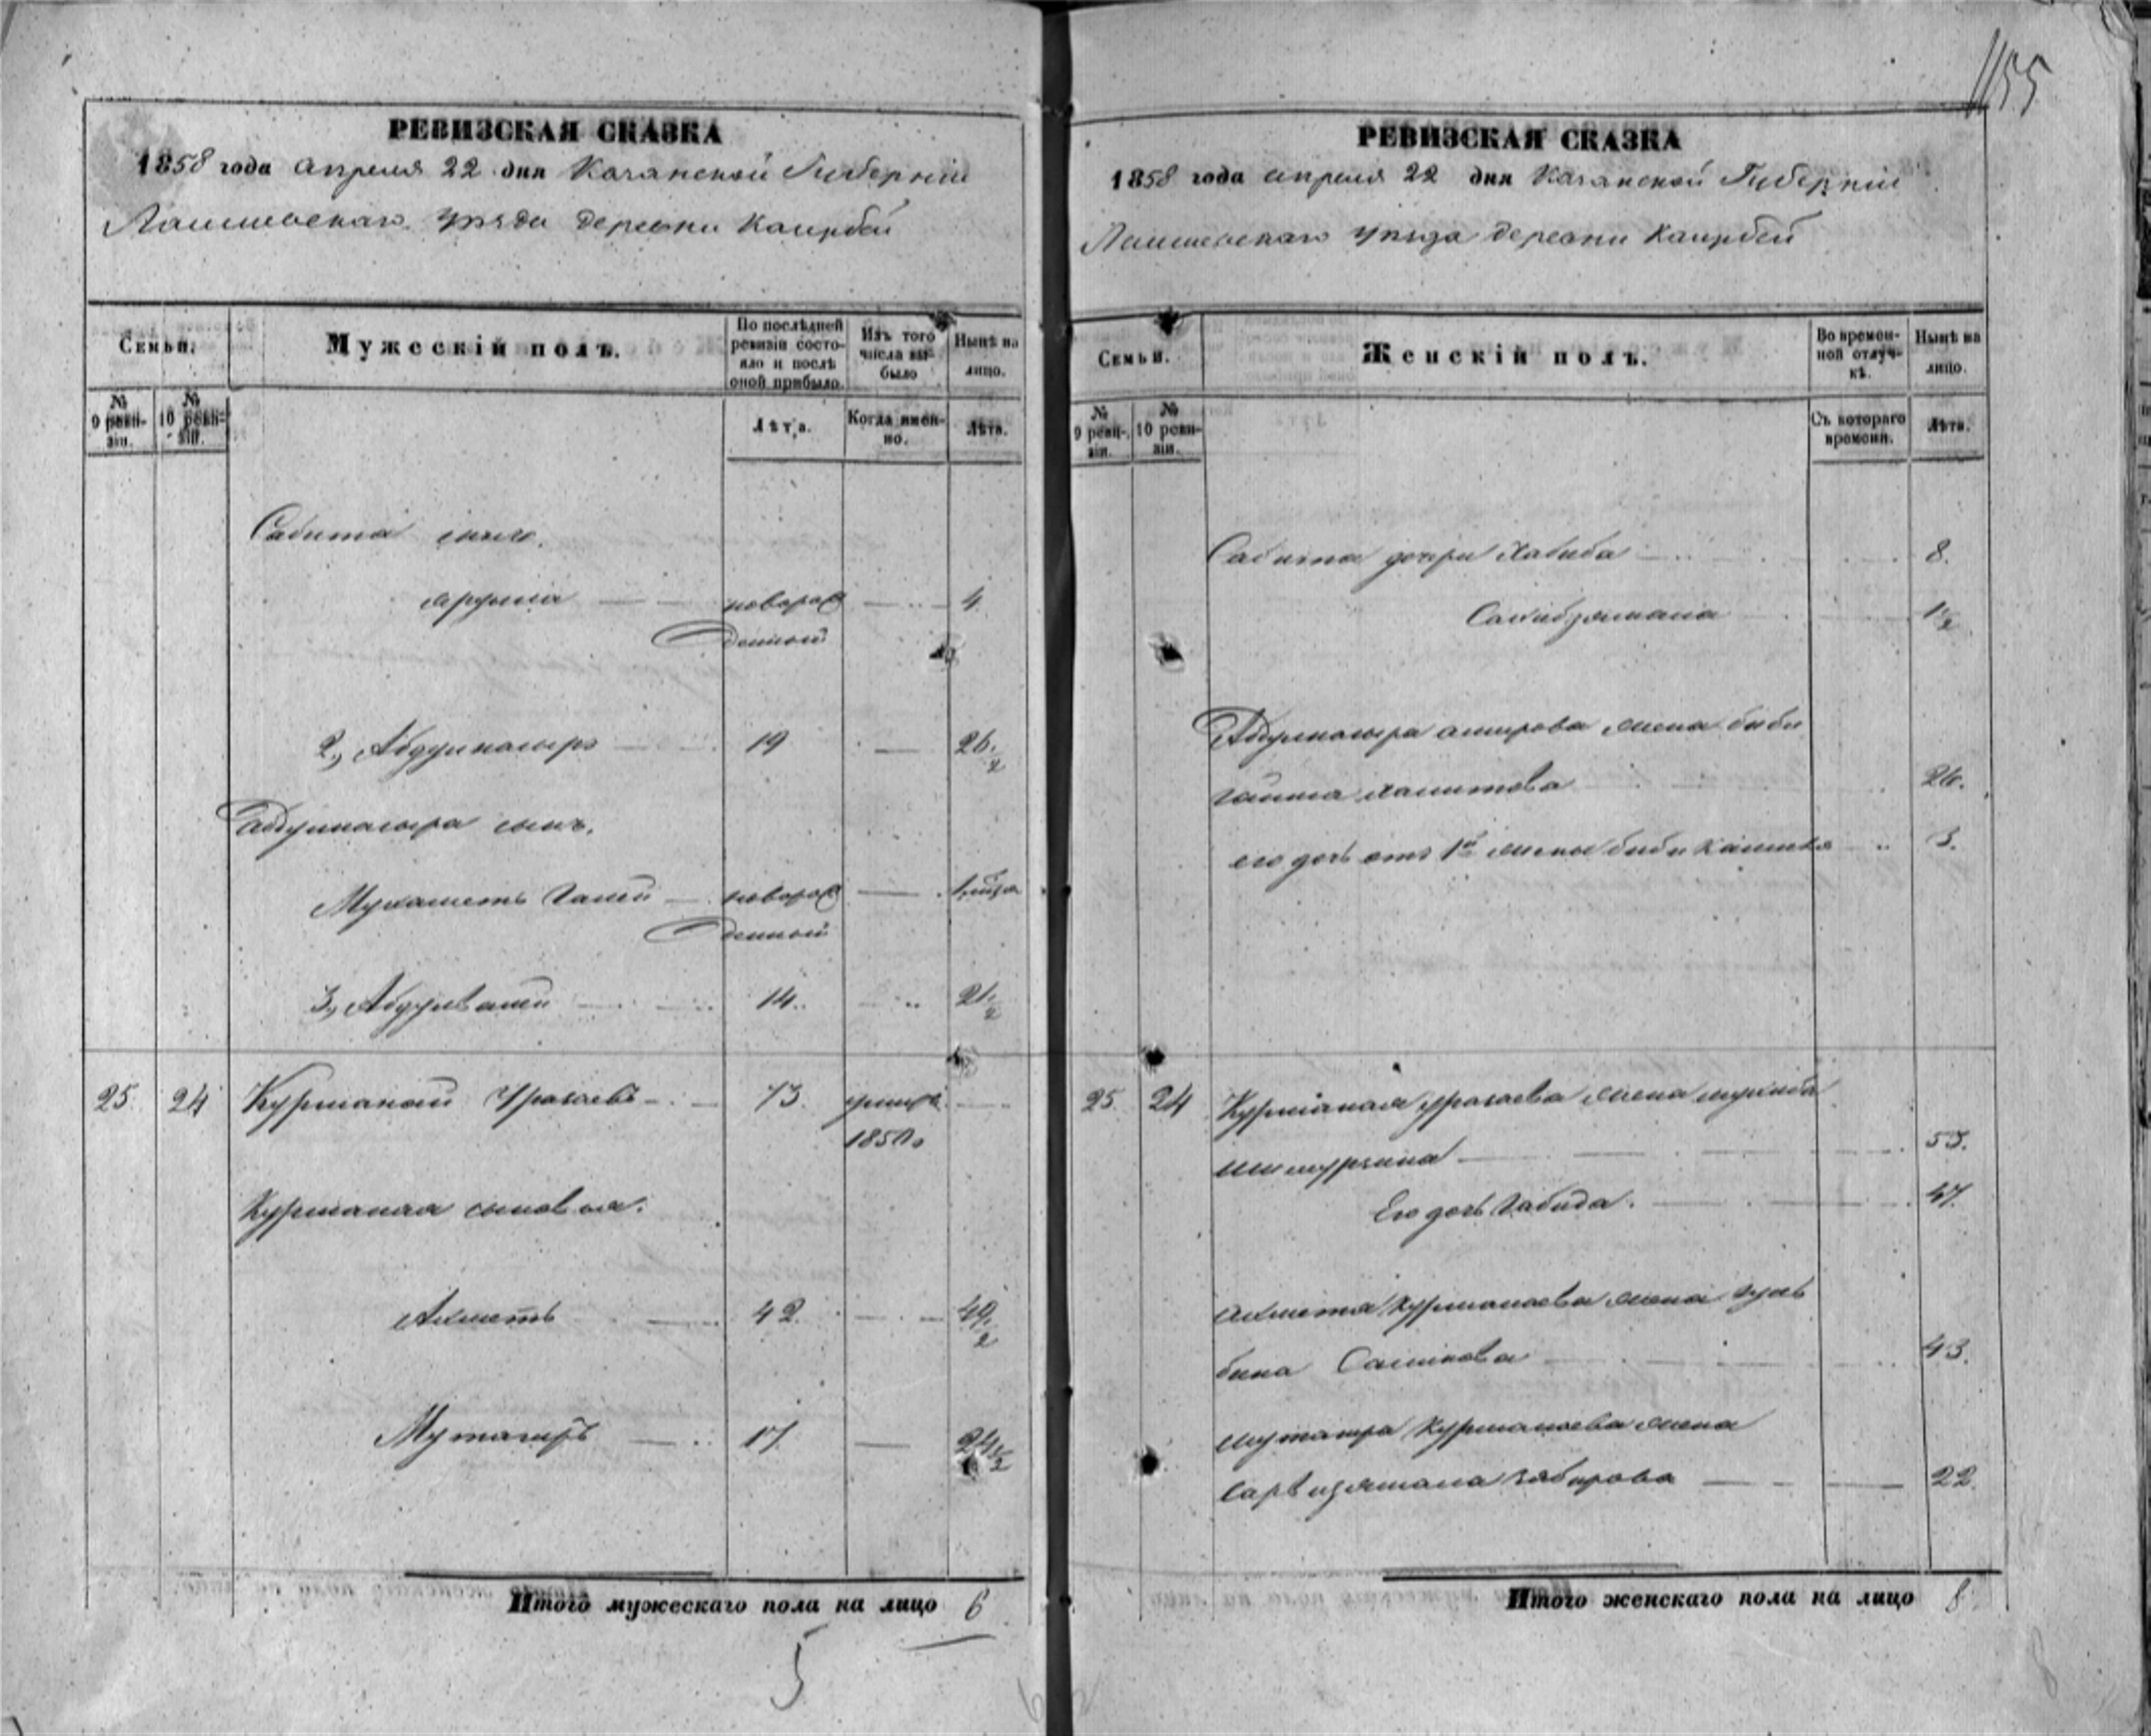 1155
РЕВИЗСКАЯ СКАЗКА
1858 года апреля 22 дня Казанской Губернии
Лаишевскаго уезда деревни Каирбей
Семьи.
Мужескій полъ.
По послѣдней ревизіи состояло и послѣ оной прибыло.
Изъ того числа выбыло
Нынѣ на лицо.
№ 9 ревизіи.
№ 10 ревизіи.
Лѣта.
Когда именно.
Лѣта.
Сабита сынъ.
новорож 4
денный
2, Абдулнасыръ 19 26 1/2
Абдулнасыра сынъ.
Мухаметъ Галей новорож
денный
3, Абдулвалей 14 21 1/2
25 24 Курманай Уразаевъ 73 умеръ
1850.
Курманая сыновья.
Ахметъ 42 49 1/2
Мутагиръ 17 24 1/2
Итого мужескаго пола на лицо 6
5
РЕВИЗСКАЯ СКАЗКА
1858 года апреля 22 дня Казанской Губернии
Лаишевскаго уезда деревни Каирбей
Семьи.
Женскій полъ.
Во временной отлучкѣ.
Нынѣ на лицо.
№ 9 ревизіи.
№ 10 ревизіи.
Съ котораго времени.
Лѣта.
Сабита дочери Хабиба 8.
Сахибзямала 1/2
Абдулнасыра жена биби
26.
его дочь отъ 1й жены биби 3.
25 24 Курманая Уразаева жена
55.
Его дочь Габида. 47.
Ахметя Курманаева жена Гуль
бина 43.
Мутагира Курманаева жена
Сарвизямала Забирова 22.
Итого женскаго пола на лицо 8